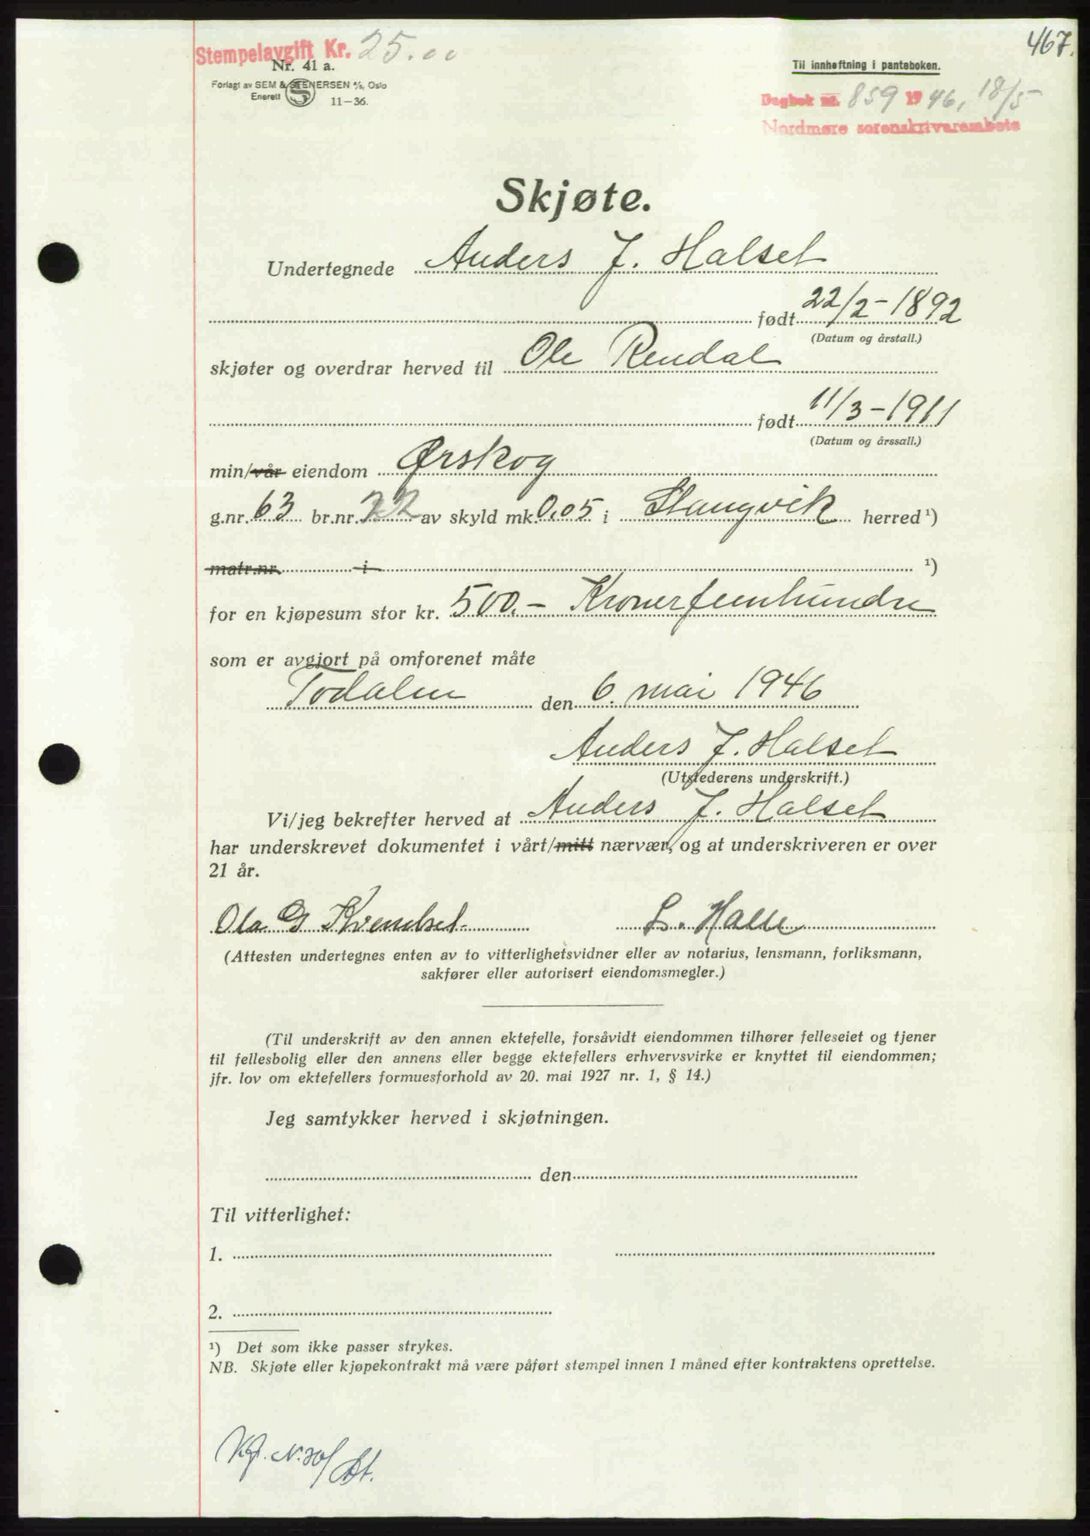 467.
Stempelavgift Kr. 25.00
Nr. 41 a.
Forlagt av SEM & STENERSEN A/S, Oslo
Enerett S 11-36.
Til innheftning i panteboken.
Dagbok nr. 859 1946, 18/5
Nordmøre sorenskrivarembete
Skjøte.
Undertegnede Anders J. Halset
født 22/2-1892
(Datum og årstall.)
skjøter og overdrar herved til Ole Rendal
født 11/3-1911
(Datum og årssall.)
min/vår eiendom Ørskog
g.nr. 63 br.nr. 22 av skyld mk. 0,05 i Stangvik herred ¹)
matr.nr. i ¹)
for en kjøpesum stor kr. 500.- Kronerfemhundre
som er avgjort på omforenet måte
Todalen den 6. mai 1946
Anders J. Halset
(Utstederens underskrift.)
Vi/jeg bekrefter herved at Anders J. Halset
har underskrevet dokumentet i vårt/mitt nærvær, og at underskriveren er over
21 år.
Ola G Kvendset L. Halse
(Attesten undertegnes enten av to vitterlighetsvidner eller av notarius, lensmann, forliksmann,
sakfører eller autorisert eiendomsmegler.)
(Til underskrift av den annen ektefelle, forsåvidt eiendommen tilhører felleseiet og tjener
til fellesbolig eller den annens eller begge ektefellers erhvervsvirke er knyttet til eiendommen;
jfr. lov om ektefellers formuesforhold av 20. mai 1927 nr. 1, § 14.)
Jeg samtykker herved i skjøtningen.
den
Til vitterlighet:
1.
2.
¹) Det som ikke passer strykes.
NB. Skjøte eller kjøpekontrakt må være påført stempel innen 1 måned efter kontraktens oprettelse.